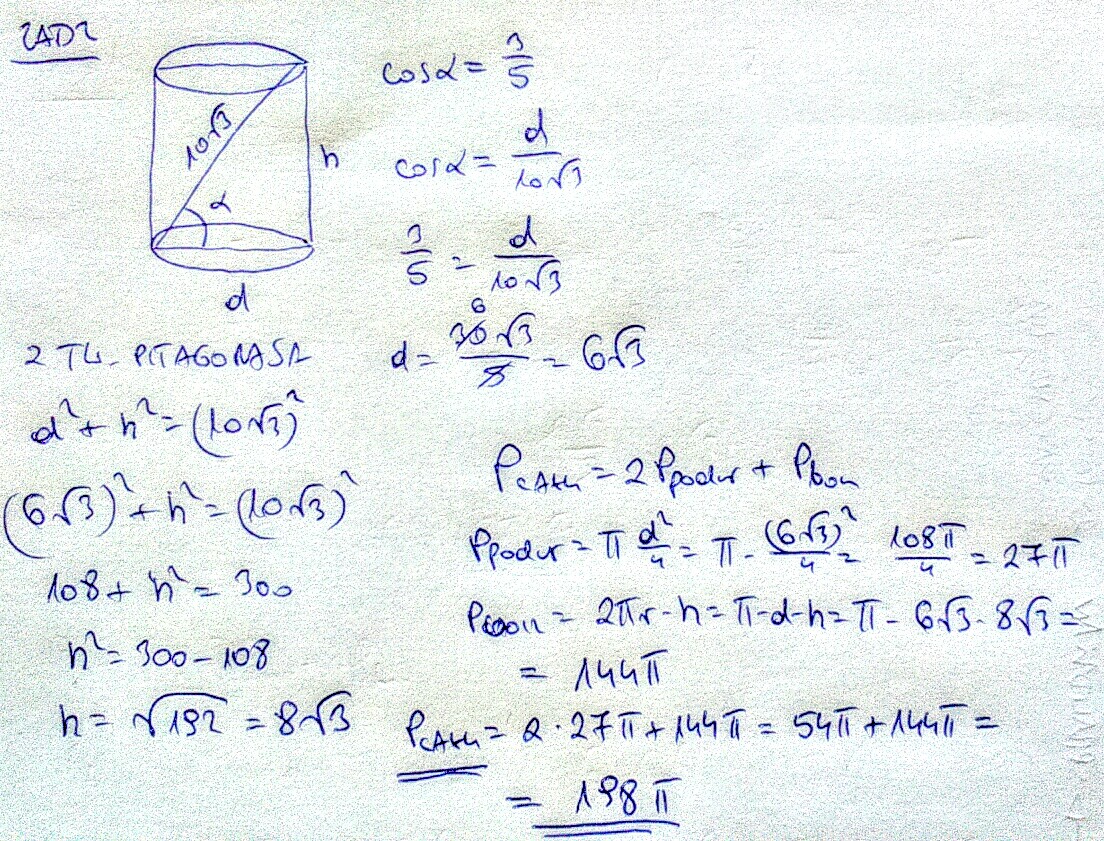 ZAD2
10√3
h
α
d
cosα = 3/5
cosα = d/10√3
3/5 = d/10√3
d = 30√3/5 = 6√3
6
2 TW. PITAGORASA
d² + h² = (10√3)²
(6√3)² + h² = (10√3)²
108 + h² = 300
h² = 300 - 108
h = √192 = 8√3
Pcałk = 2 Ppodst + Pbocz
Ppodst = π d²/4 = π · (6√3)²/4 = 108π/4 = 27π
Pbocz = 2πr · h = π · d · h = π · 6√3 · 8√3 =
= 144π
Pcałk = 2 · 27π + 144π = 54π + 144π =
= 198π